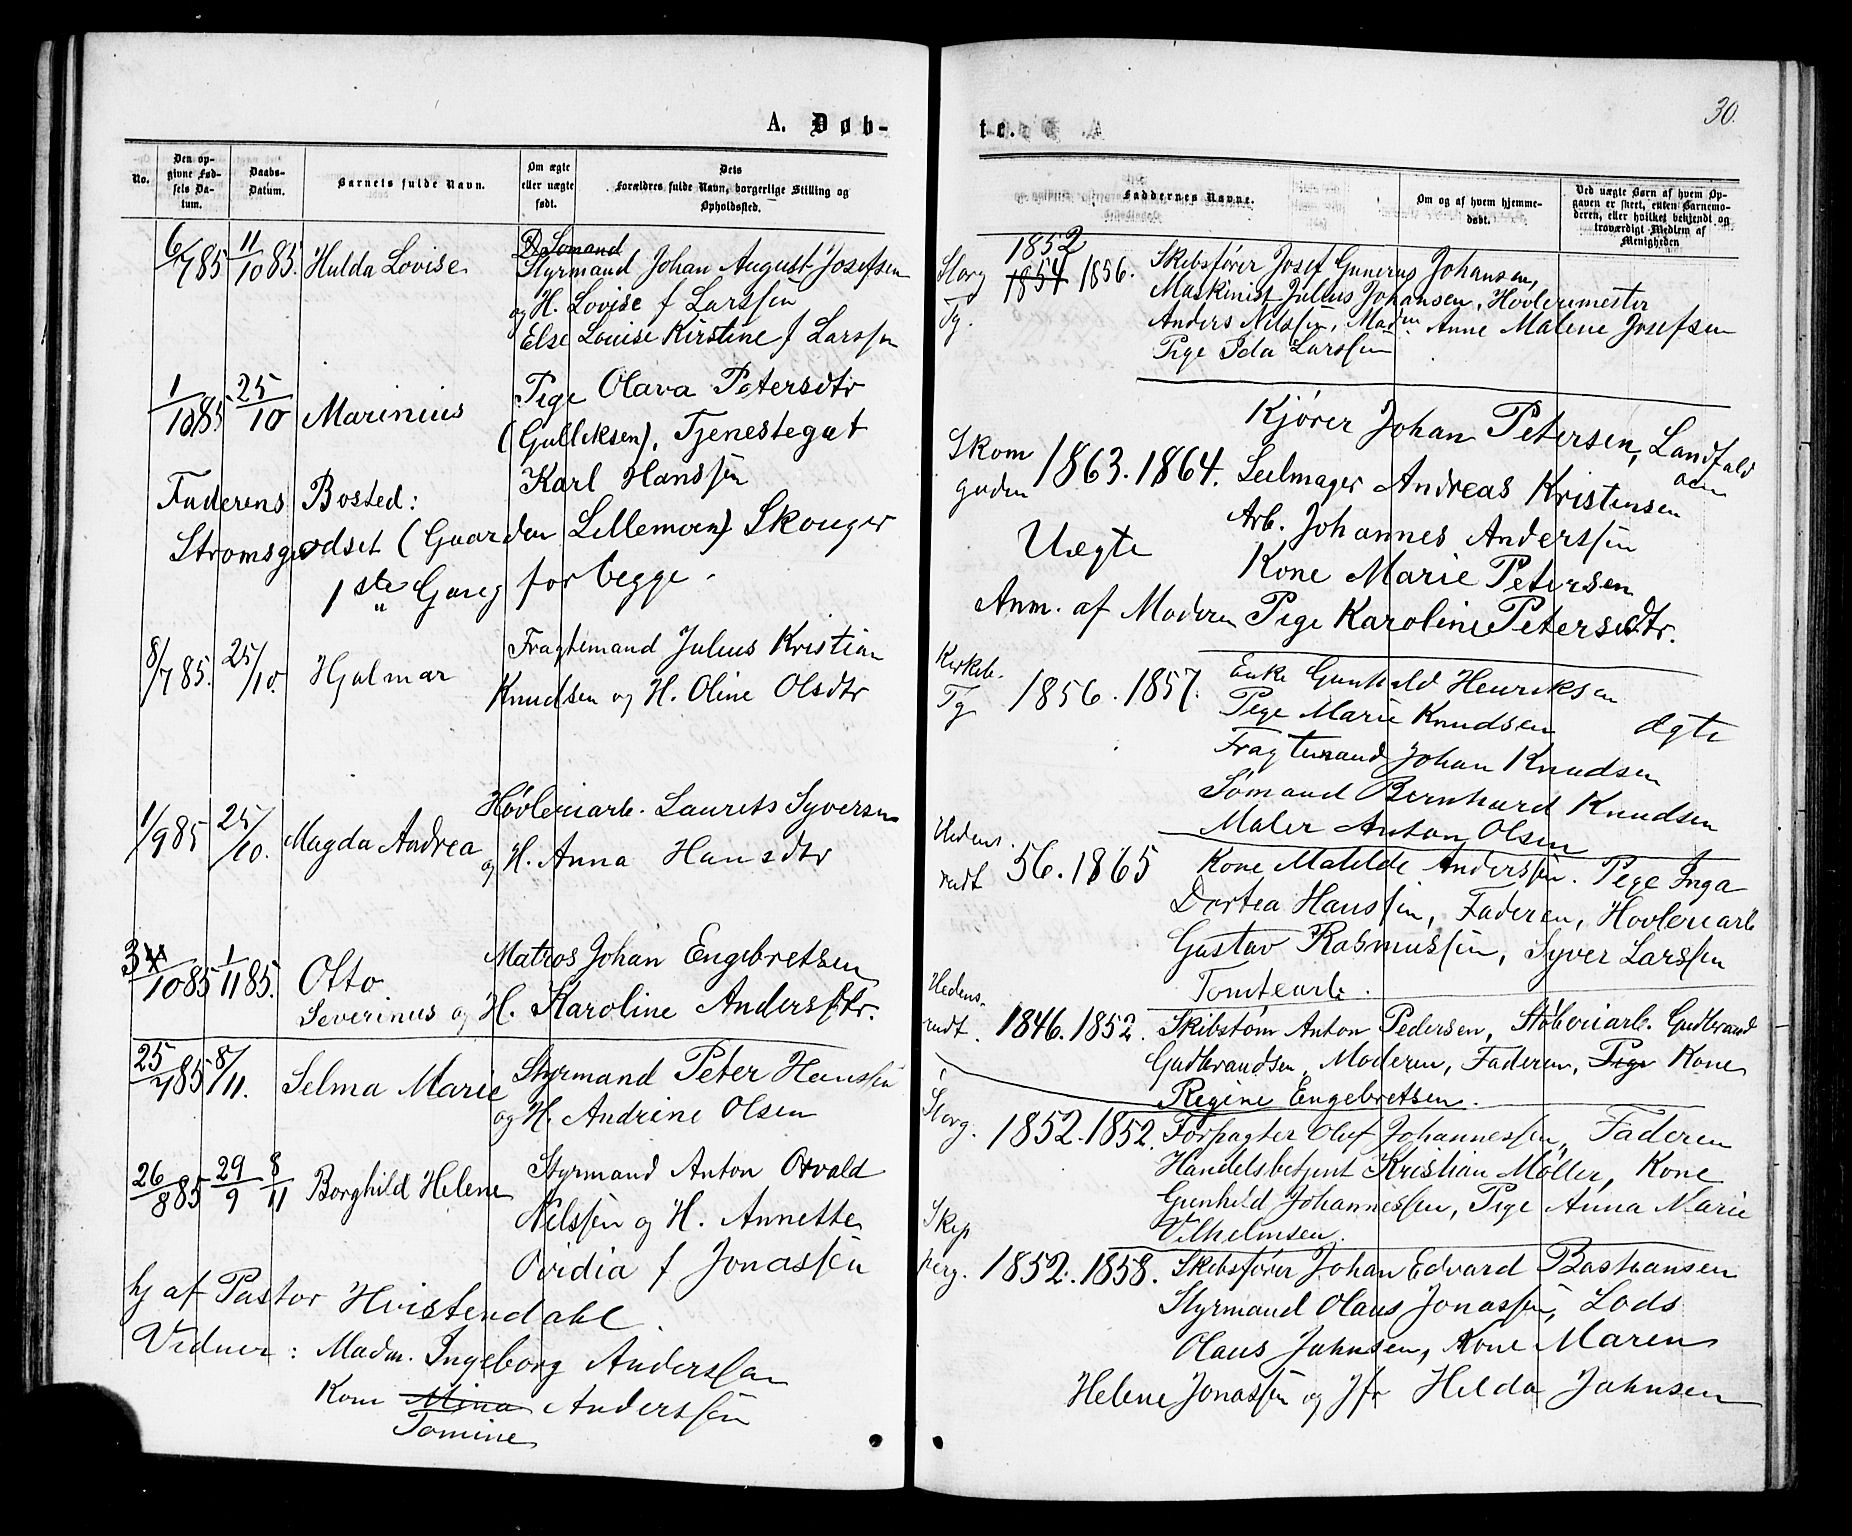 A. Døb-
No.
Den op-
givne Fød-
sels Da-
tum.
Daabs-
Datum.
Barnets fulde Navn.
Om ægte
eller uægte
født.
Dets
Forældres fulde Navn, borgerlige Stilling og
Opholdssted.
6/7 85 11/10 85. Hulda Lovise
Sømand
Styrmand Johan August Josefsen
og H. Lovise f Larssen
Else Louise Kirstine f Larssen
1/10 85 25/10 Marinius
Pige Olava Petersdtr
(Gulliksen), Tjenestegut
Karl Hanssen
Faderens Bosted:
Strømsgodset (Gaarden Lillemoen) Skouger
1ste Gang for begge.
8/7 85. 25/10. Hjalmar
Fragtemand Julius Kristian
Knudsen og H. Oline Olsdtr
1/9 85 25/10. Magda Andrea
Høvleriarb. Laurits Syversen
og H. Anna Hansdtr
3/10 85 1/11 85. Otto
Severinus
Matros Johan Engebretsen
og H. Karoline Andersdtr.
25/7 85 8/11. Selma Marie
Styrmand Peter Hanssen
og H. Andrine Olsen
26/8 85 29/9 8/11 Borghild Helene
Styrmand Anton Osvald
Nilssen og H. Annette
Ovidia f Jonassen
hj af Pastor Hvistendahl.
Vidner: Madm. Ingeborg Anderssen
Kone Mina Anderssen
Tomine
30.
te.
Faddernes Navne.
Om og af hvem hjemme-
døbt.
Ved uægte Børn af hvem Op-
gaven er skeet, enten Barnemo-
deren, eller hvilket bekjendt og
troværdigt Medlem af
Menigheden
Storg
Tg.
1852
1854 1856.
Skibsfører Josef Gunerus Johansen,
Maskinist Julius Johansen, Høvlerimester
Anders Nilssen, Madm Anne Malene Josefsen
Pige Ida Larssen
Skom
gaden 1863. 1864.
Kjører Johan Petersen, Landfald
Seilmager Andreas Kristensen
Arb. Johannes Anderssen
Uægte
Kone Marie Petersen
Anm. af Moderen Pige Karoline Petersdtr.
Kirkeb.
Tg 1856. 1857.
Enke Gunhild Henriksen
Pige Marie Knudsen Ægte
Fragtemand Johan Knudsen
Sømand Bernhard Knudsen
Maler Anton Olsen
Hedens.
rudt 56. 1865
Kone Matilde Anderssen. Pige Inga
Dortea Hanssen, Faderen, Høvleriarb
Gustav Rasmussen, Syver Larssen
Tomtearb.
Hedens.
rudt. 1846. 1852.
Skibstøm Anton Pedersen, Støberiarb. Gudbrand
Gudbrandsen, Moderen, Faderen, Pige Kone
Regine Engebretsen.
Storg. 1852. 1852.
Forpagter Oluf Johannessen, Faderen
Handelsbetjent Kristian Møller, Kone
Gunhild Johannessen, Pige Anna Marie
Vilhelmsen.
Skip
perg. 1852. 1858.
Skibsfører Johan Edvard Bastiansen
Styrmand Olaus Jonassen, Lods
Olaus Jahnsen, Kone Maren
Helene Jonassen og Jfr Hilda Jahnsen